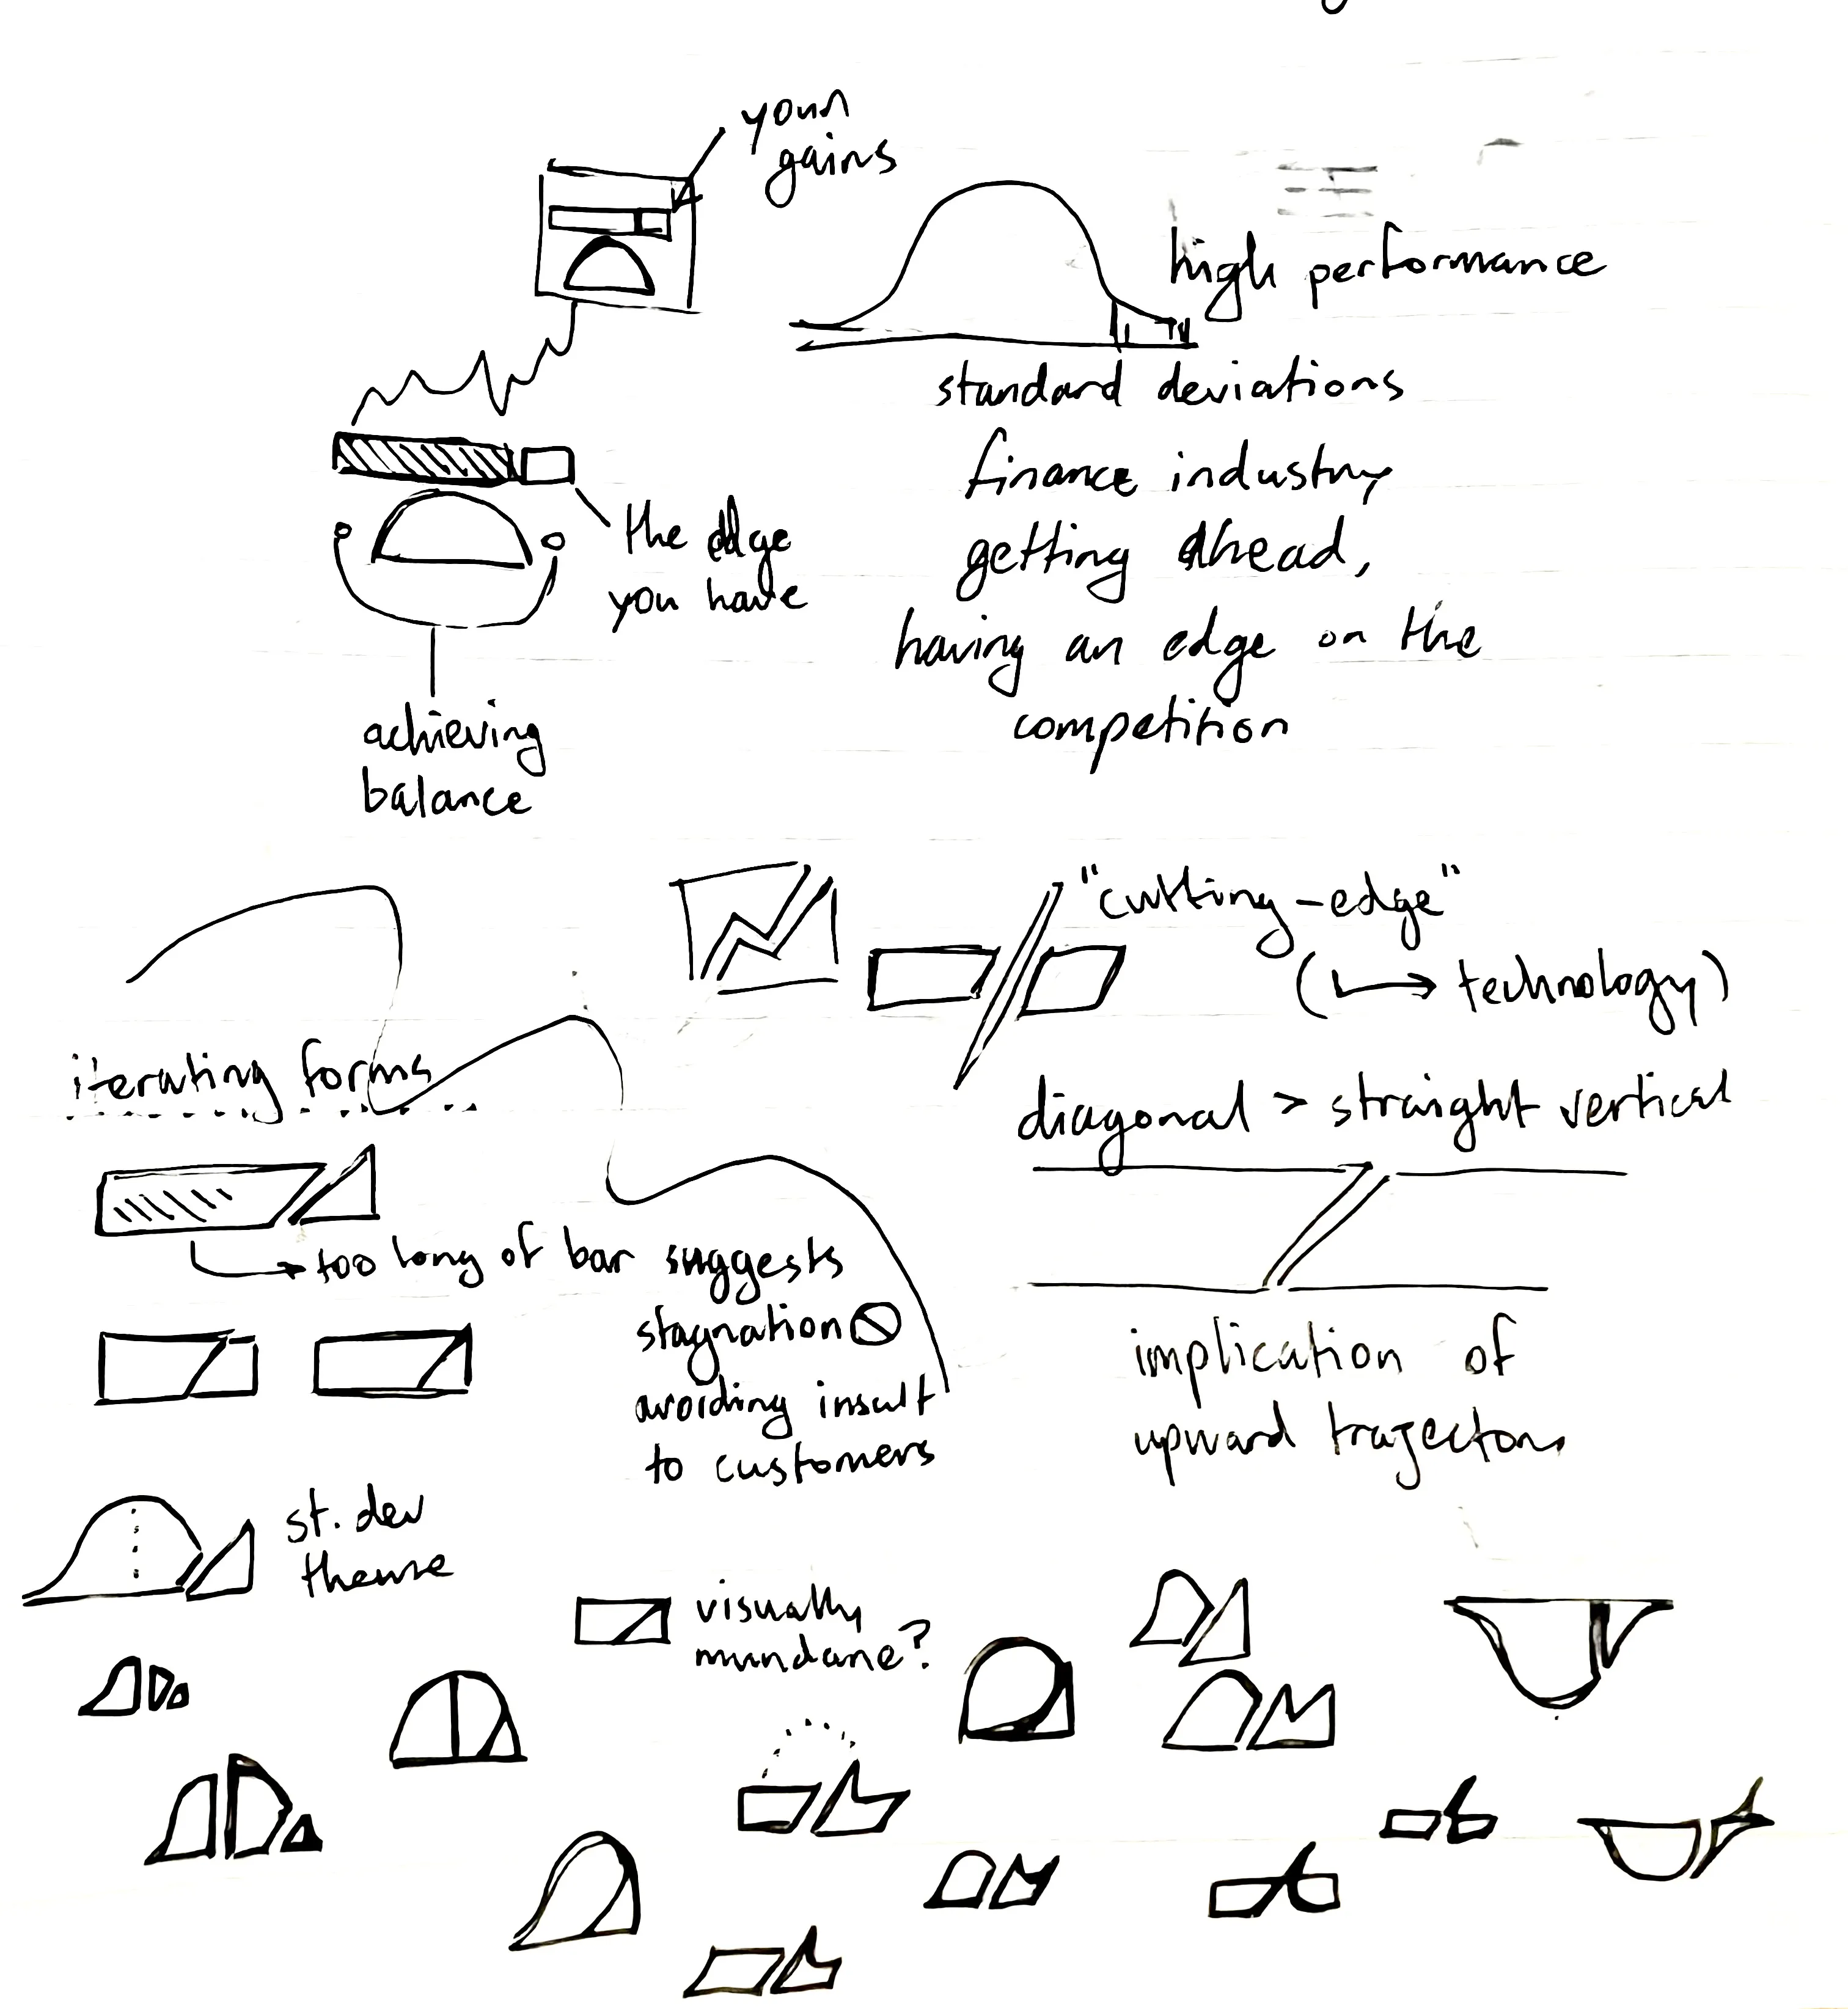 your
gains
high performance
standard deviations
finance industry
getting ahead,
having an edge on the
competition
the edge
you have
achieving
balance
"cutting-edge"
(↳ technology)
diagonal > straight vertical
implication of
upward trajectory
iterating forms
too long of bar suggests
stagnation
avoiding insult
to customers
st. dev
theme
visually
mundane?